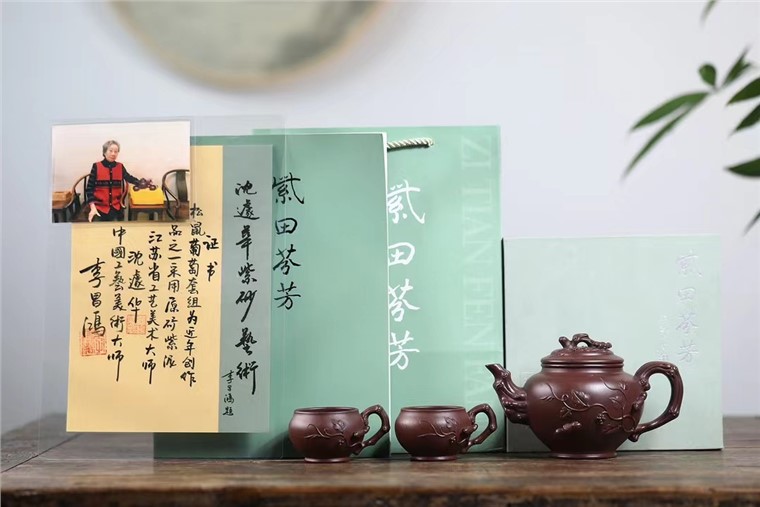 沈遽華紫砂藝術
李昌鴻题
证书
松鼠葡萄套组为近年创作
品之一采用原矿紫泥
江苏省工艺美术大师
沈遽华
中國工藝美術大师
李昌鴻
紫田芬芳
紫田芬芳
ZI TIAN FEN
紫田芬芳